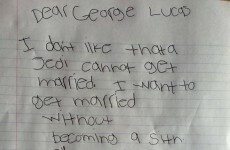 Dear George Lucas
I dont like that a
Jedi cannot get
married. I want to
get married
without
becoming a Sith